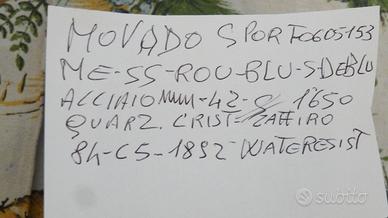 MOVADO SPORT 0605153
ME-SS-ROU-BLU-S-DEBLU
ACCIAIO MM-42- 1'650
QUARZ. CRIST-ZAFFIRO
84-C5-1892-WATERESIST
subito